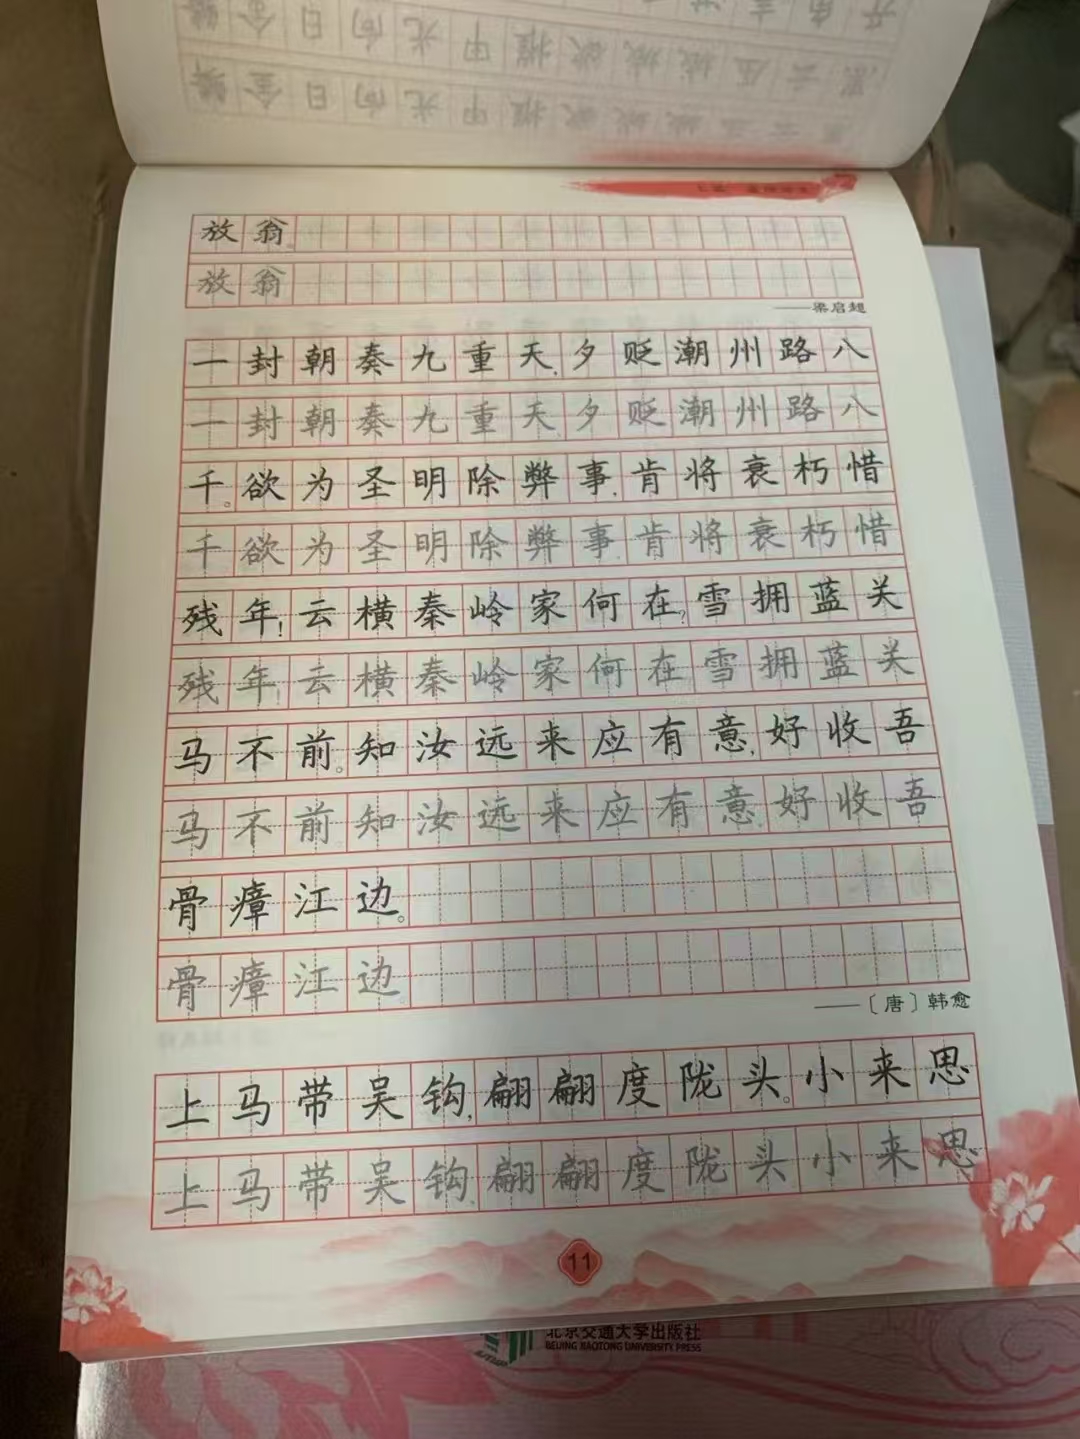 放翁。
放翁
——梁启超
一封朝奏九重天,夕贬潮州路八
一封朝奏九重天,夕贬潮州路八
千。欲为圣明除弊事,肯将衰朽惜
千。欲为圣明除弊事,肯将衰朽惜
残年!云横秦岭家何在?雪拥蓝关
残年!云横秦岭家何在?雪拥蓝关
马不前。知汝远来应有意,好收吾
马不前。知汝远来应有意,好收吾
骨瘴江边。
骨瘴江边。
——〔唐〕韩愈
上马带吴钩,翩翩度陇头。小来思
上马带吴钩,翩翩度陇头。小来思
11
北京交通大学出版社
BEIJING JIAOTONG UNIVERSITY PRESS